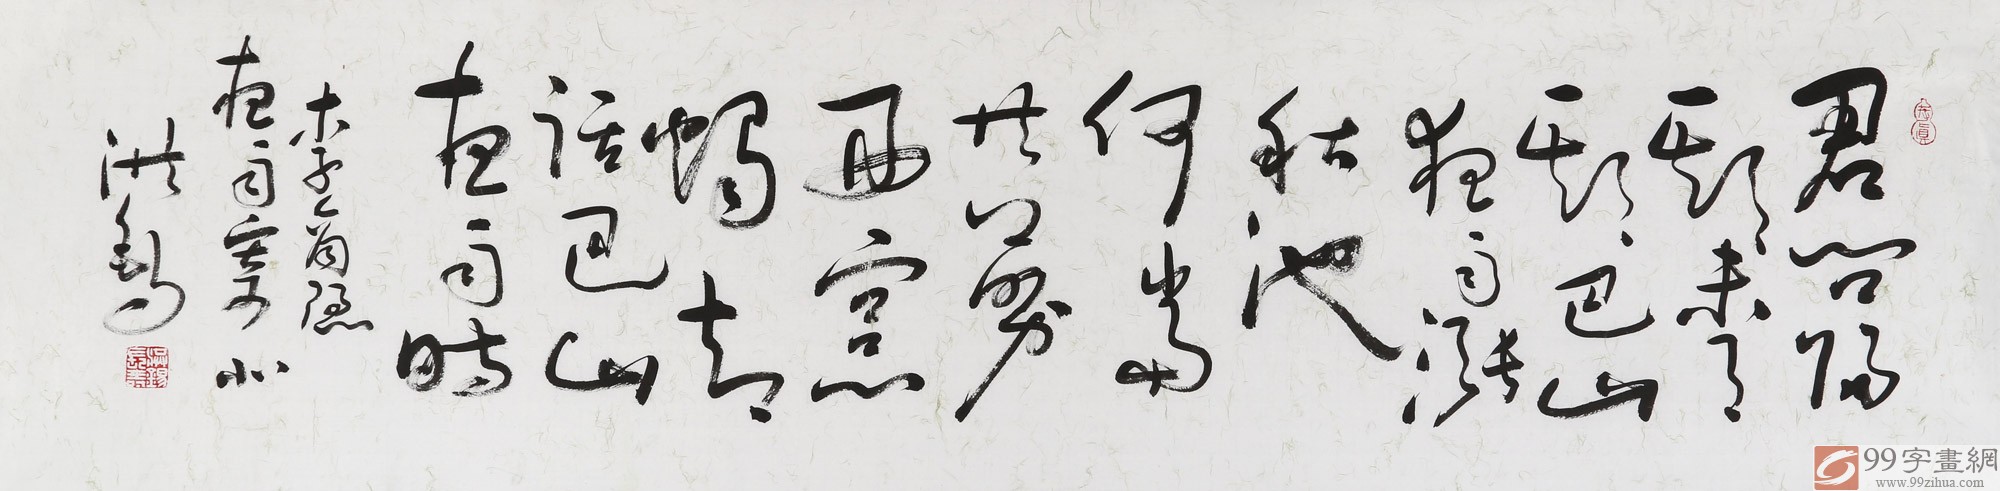 君問歸
期未有
期巴山
夜雨漲
秋池
何當
共剪
西窗
燭却
話巴山
夜雨時
李商隱
夜雨寄北
洪
99字畫網
www.99zihua.com